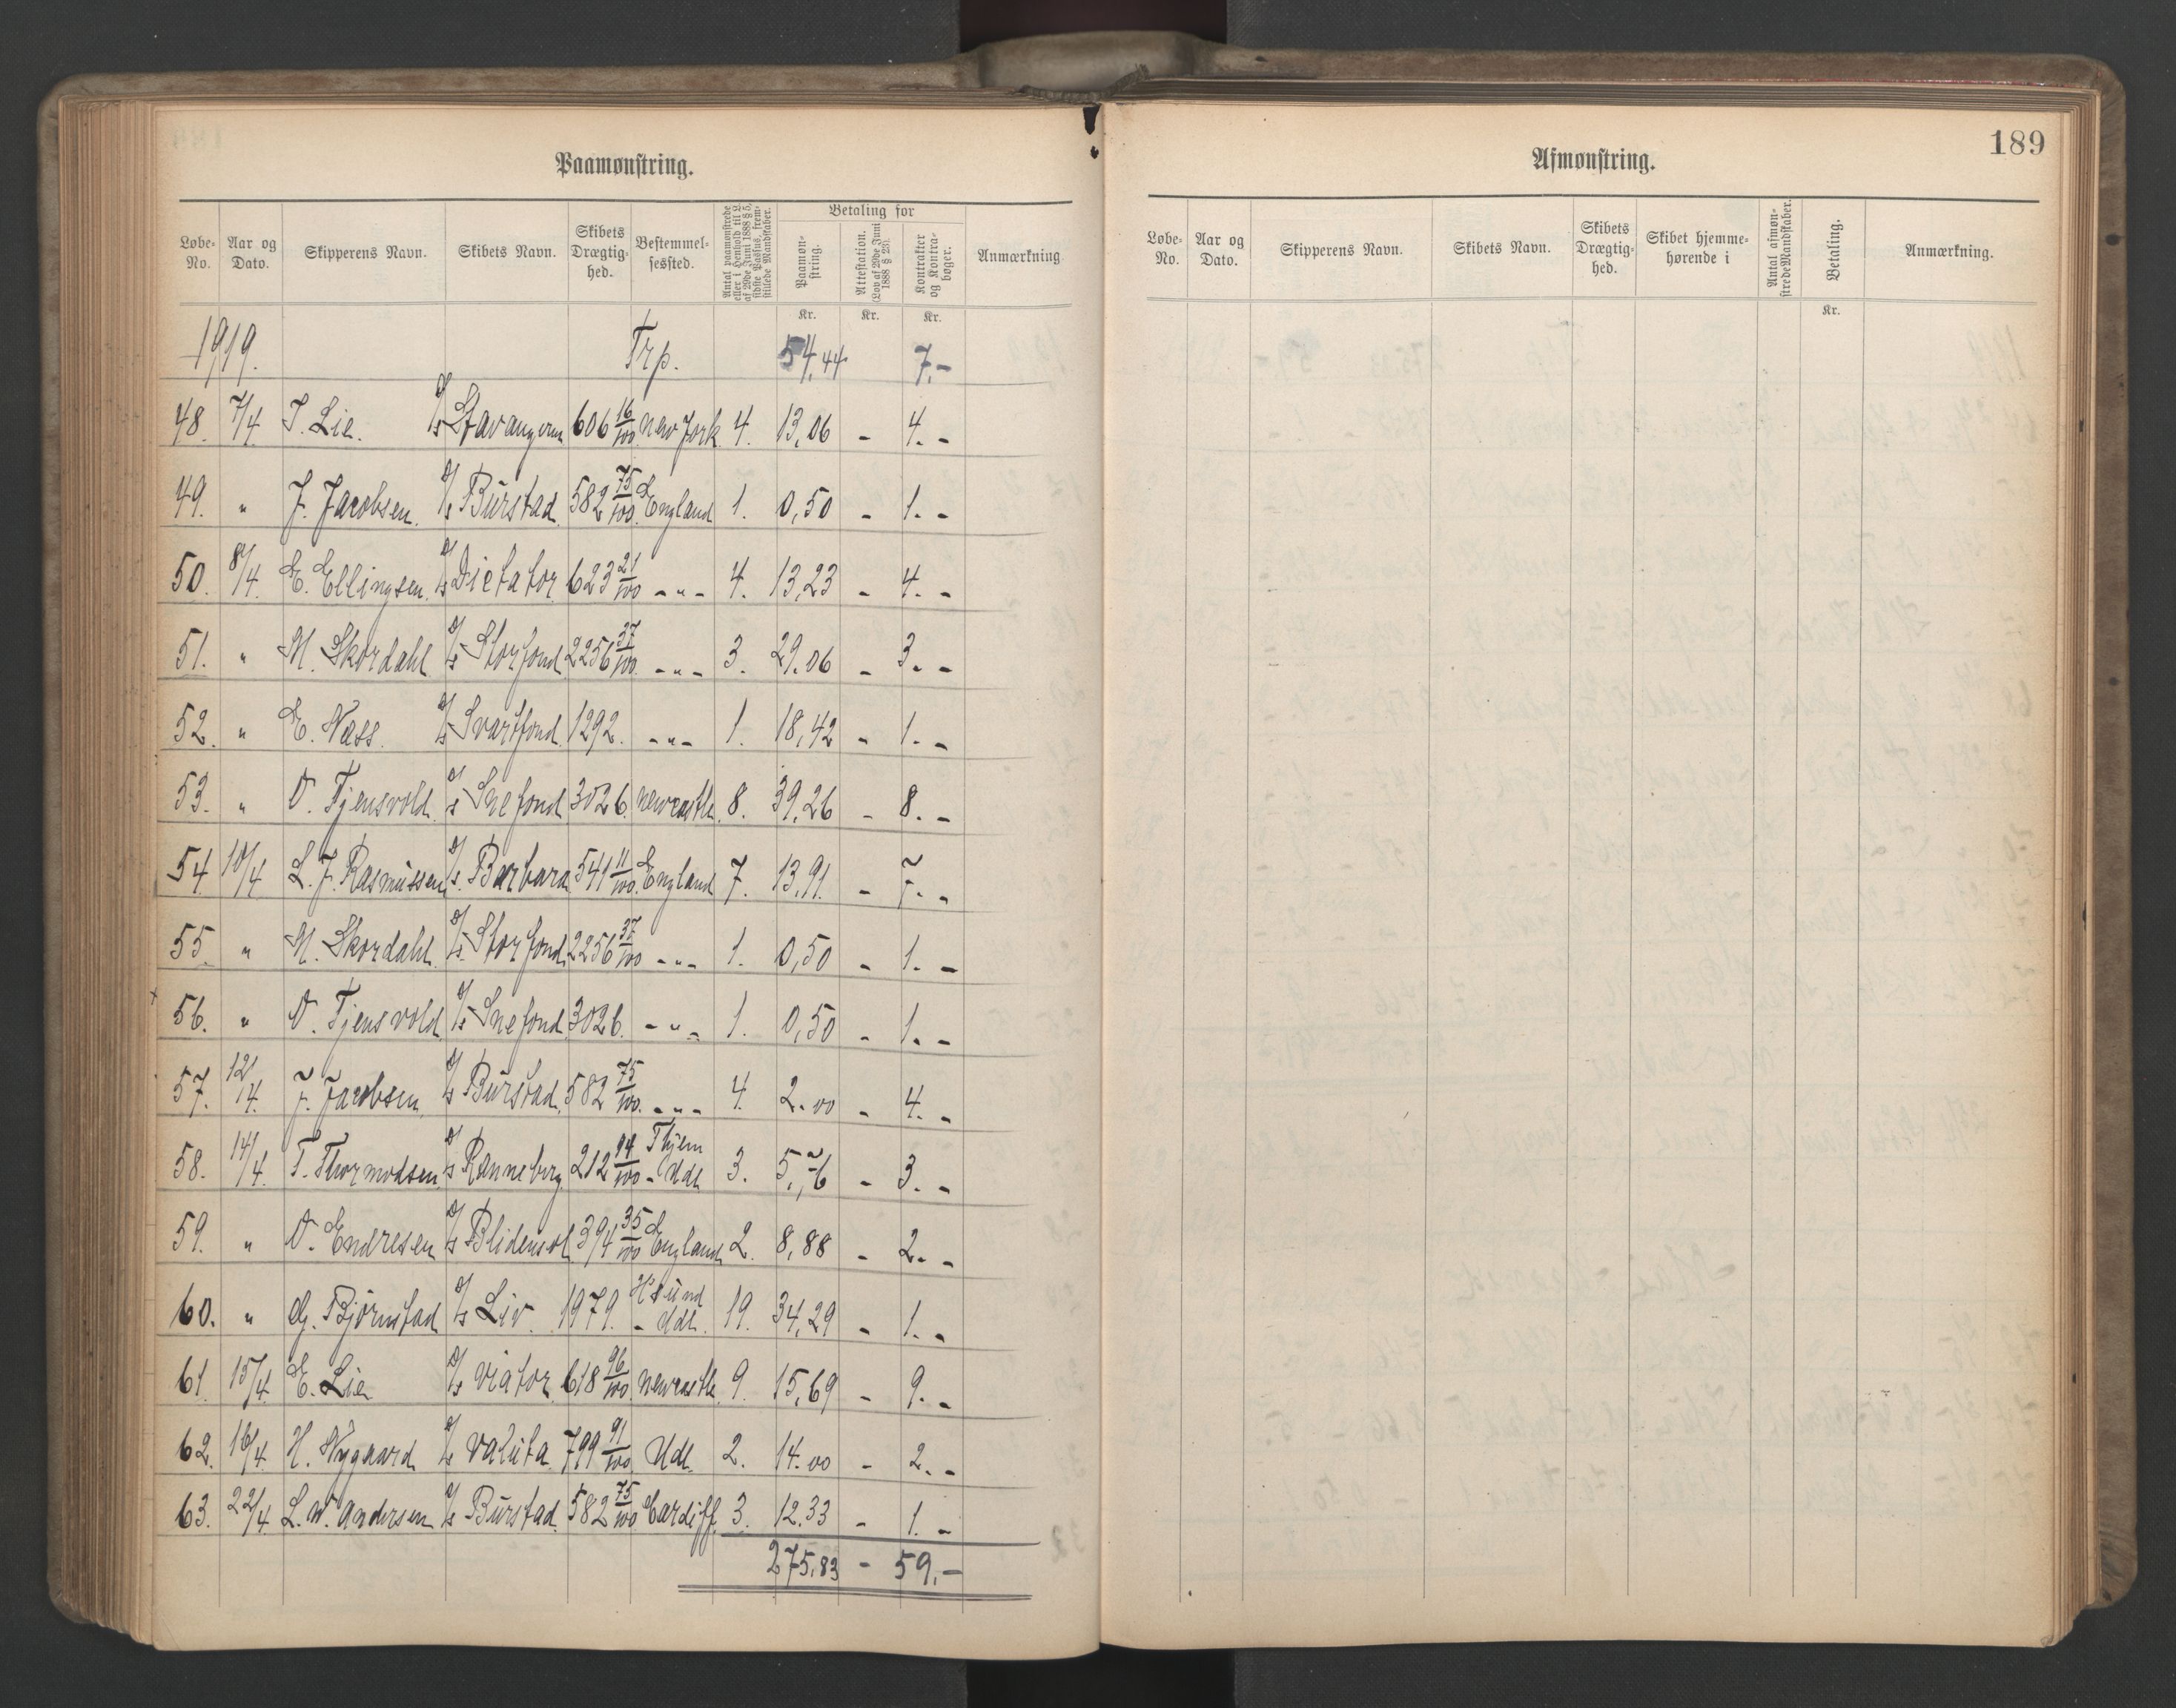 Paamønstring.
Løbe-No. Aar og Dato. Skipperens Navn. Skibets Navn. Skibets Drægtighed. Bestemmelsessted. Antal paamønstrede eller i Henhold til L. af 29de Juni 1888 § 5, sidste Passus, fremstillede Mandskaber. Betaling for Paamønstring. Attestation. (Lov af 29de Juni 1888 § 23). Kontrakter og Kontrabøger. Anmærkning
Kr. Kr. Kr.
1919. Trp. 54,44 7.-
48. 7/4 T. Lie. D/s Stavangeren 606 16/100 New York 4. 13,06 - 4. -
49. " J. Jacobsen. D/s Burstad. 582 75/100. England 1. 0,50 - 1. -
50. 8/4. E. Ellingsen. D/s Dictator 623 21/100 - " - 4. 13,23 - 4. -
51. " M. Skordahl D/s Storfond 2256 37/100. - " - 3. 29.06 - 3. -
52. " E. Næss. D/s Svartfond. 1292. - " - 1. 18,42 - 1. -
53. " O. Tjensvold. D/s Snefond. 3026. Newcastle. 8. 39,26 - 8. -
54 10/4 L. J. Rasmussen D/s. Barbara 541 11/100. England 7. 13,91. - 7. -
55. " M. Skordahl. D/s. Storfond. 2256 37/100 - " - 1. 0,50 - 1. -
56. " O. Tjensvold D/s Snefond. 3026. - " - 1. 0,50 - 1. -
57. 12/4. J. Jacobsen. D/s Burstad. 582 75/100. - " - 4. 2.00 - 4. -
58. 14/4. T. Thormodsen. D/s Ranneberg. 212 94/100 Thjem - Udl 3. 5,76 - 3. -
59. " O. Endresen D/s Blidensol 394 35/100 England 2. 8,88 - 2. -
60. " G. Bjørnstad D/s Liv. 1979. H'sund - Udl. 19. 34,29 - 1. -
61. 15/4. E. Lie D/s Viator. 618 96/100 Newcastle. 9. 15,69 - 9. -
62. 16/4. H. Nygaard. D/s Valuta. 799 91/100. Udl. 2. 14.00 - 2. -
63. 22/4 L. W. Andersen D/s Burstad. 582 75/100 Cardiff. 3. 12.33 - 1. -
275,83 - 59.-
189
Afmønstring.
Løbe-No. Aar og Dato. Skipperens Navn. Skibets Navn. Skibets Drægtighed. Skibet hjemmehørende i Antal afmønstrede Mandskaber. Betaling. Anmærkning.
Kr.